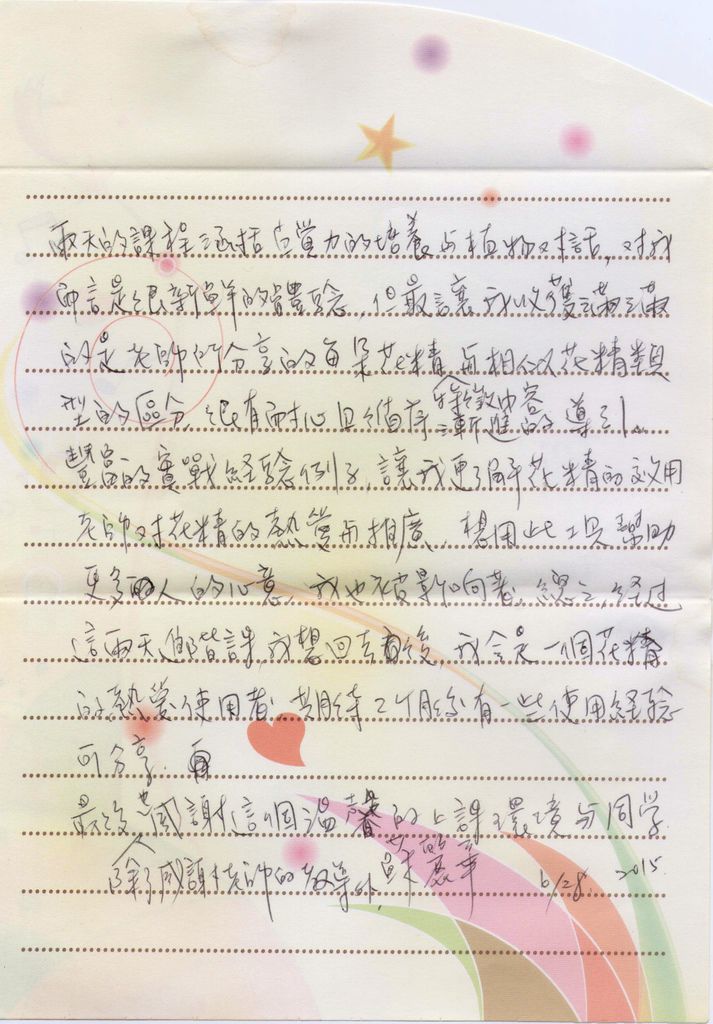 兩天的課程涵括直覺力的培養与植物对話,对我
而言是很新鮮的體驗,但最讓我收獲滿滿
的是老師所分享的每朵花精與相似花精類
型的區分,很有耐心且循序漸進的導引。
特徵內容
豐富的實戰經驗例子,讓我更了解花精的效用
老師对花精的熱愛與推廣,想用此工具幫助
更多人的心意,我也被影响著,總之,經过
這兩天進階課,我想回去後,我会是一個花精
的熱愛使用者,期待2个月後有一些使用經驗
可分享.
最後也感謝這個溫馨的上課環境与同学.
除了感謝老師的教導外,
蘇
6/28, 2015.